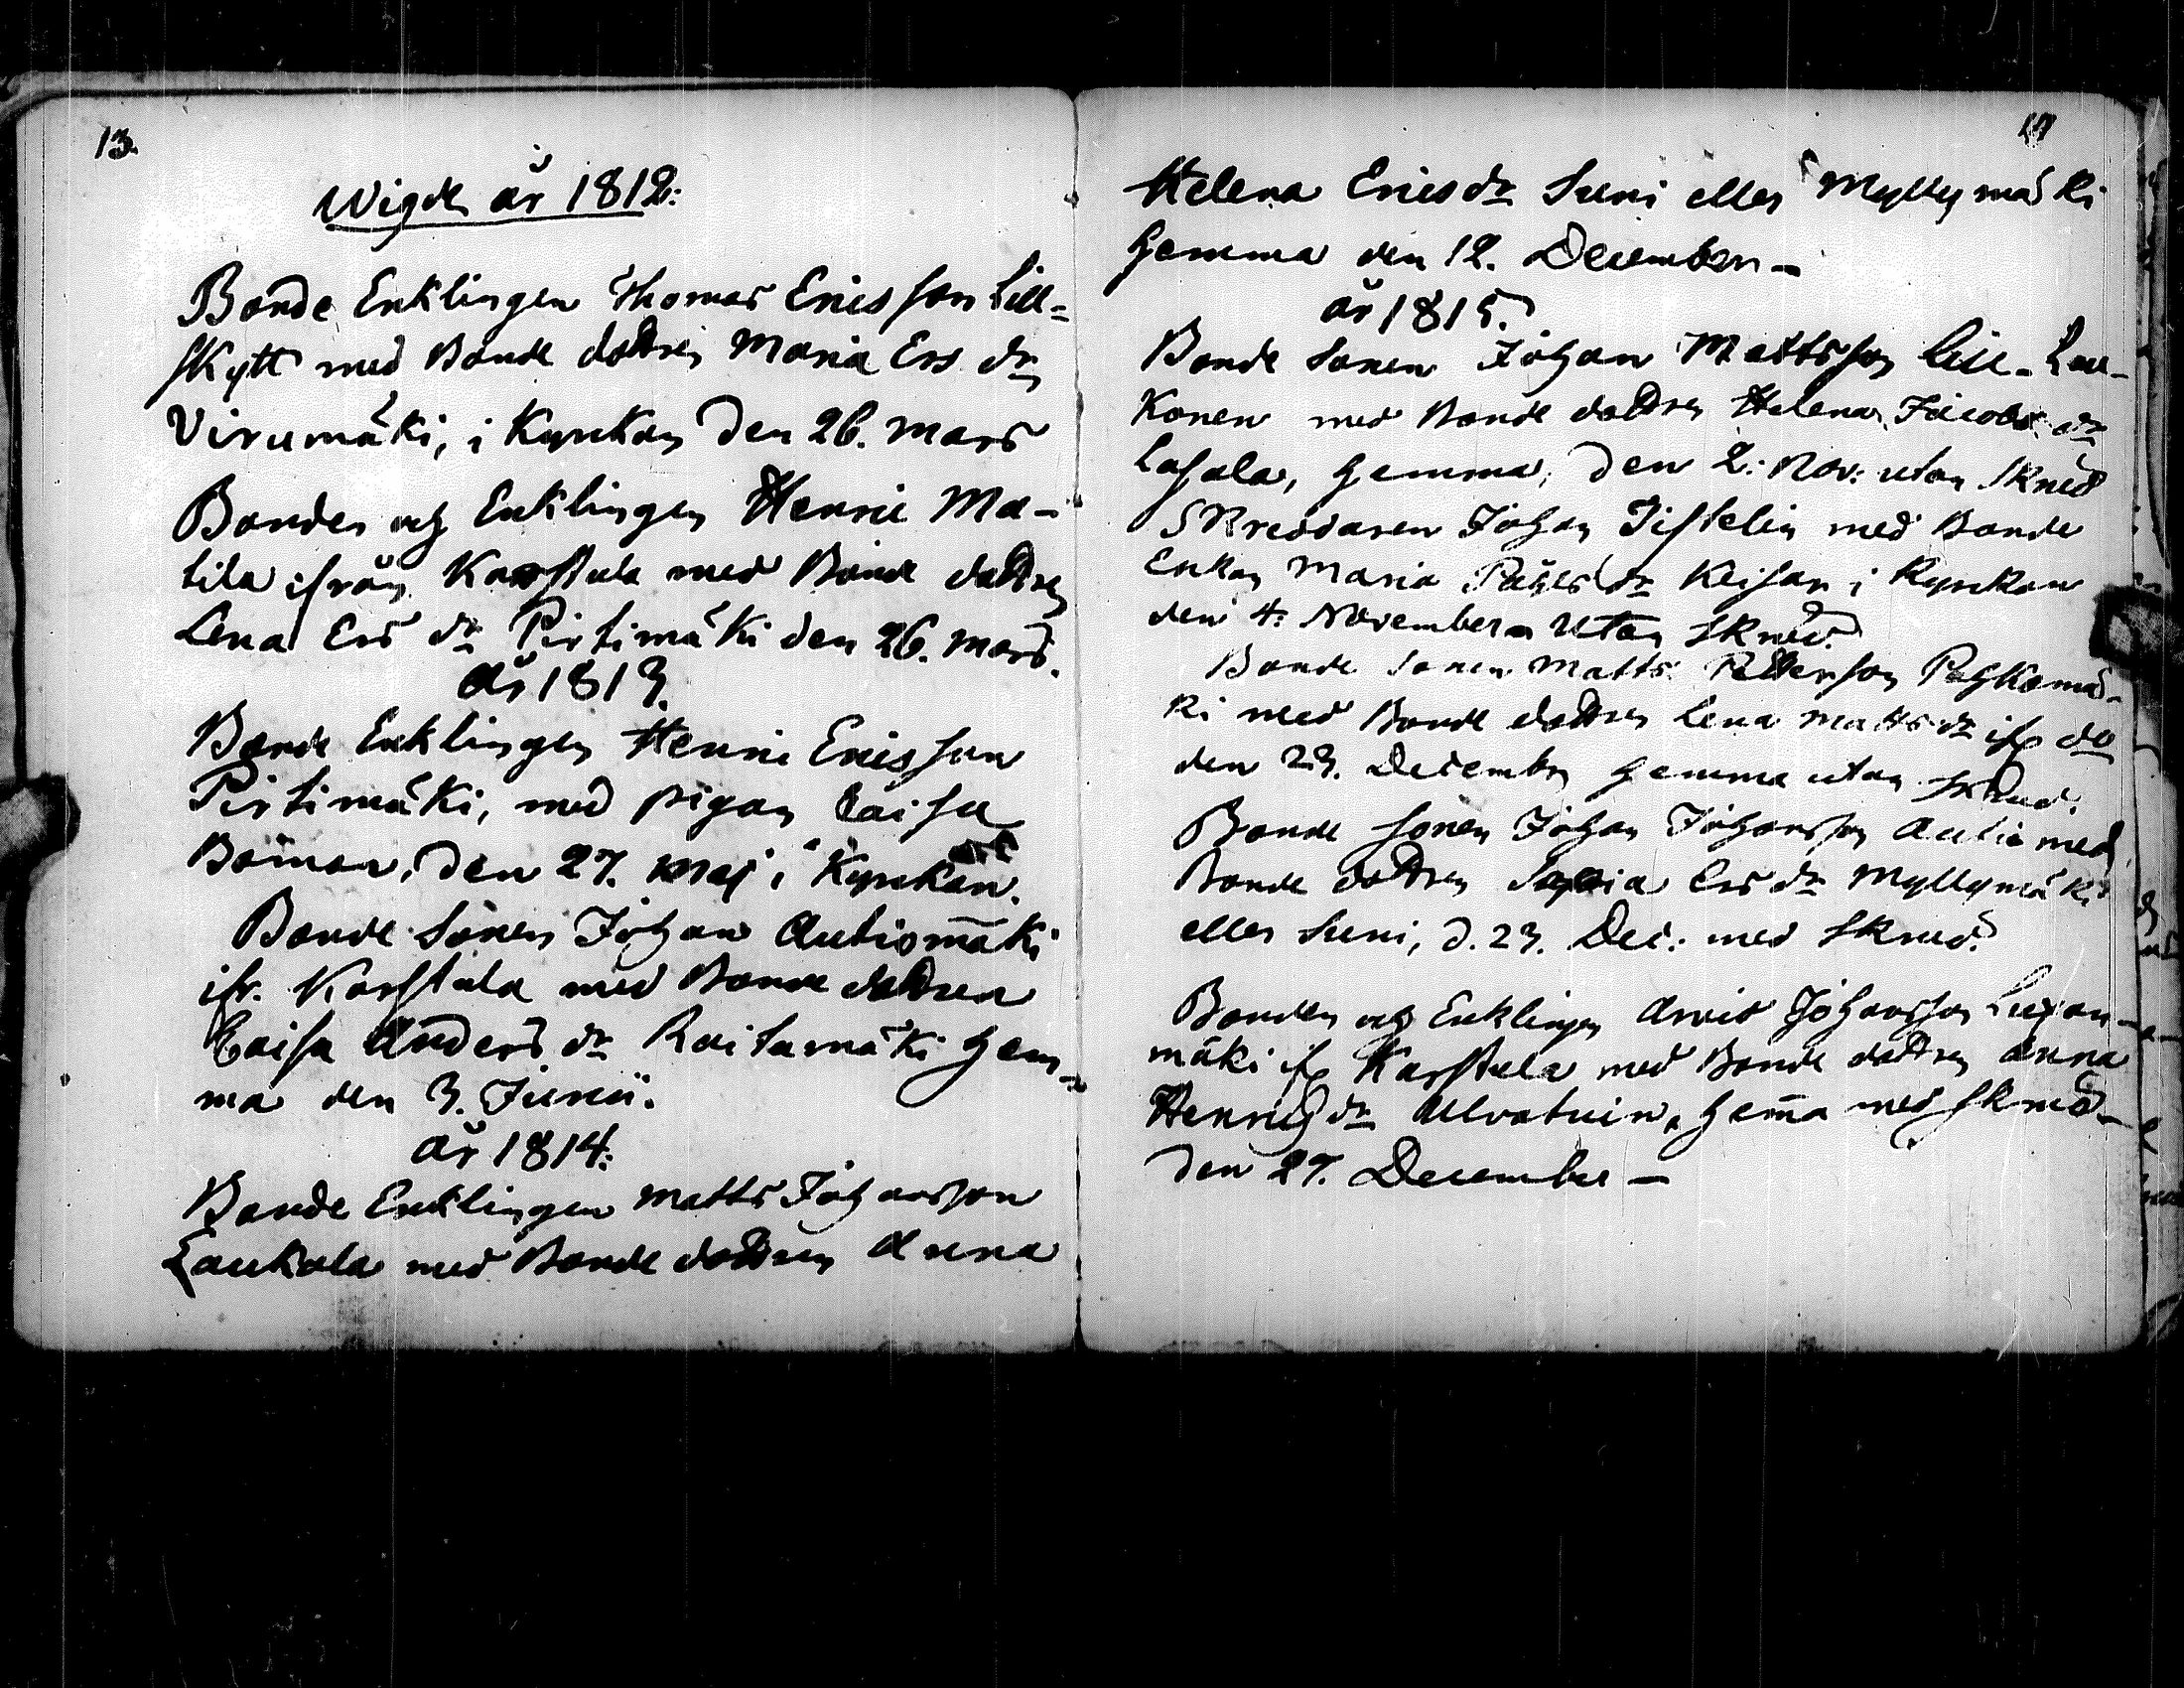 13.
Wigde år 1812:
Bonde Enklingen Thomas Ericsson Lill=
skytt med Bonde dottren Maria Ers dr
Virumäki, i Kyrkan den 26. Mars
Bonden och Enklingen Henric Ma-
tila ifrån Karstula med Bonde dottren
Lena Ers dr Pirtimäki den 26. Mars.
år 1813.
Bonde Enklingen Henric Ericsson
Pirtimäki, med pigan Caisa
Boman, den 27. Maj i Kyrkan.
Bonde Sonen Johan Autiomäki
ifr. Karstula med Bonde dottren
Caisa Anders dr Raitamäki hem-
ma den 3. Junii.
år 1814:
Bonde Enklingen Matts Johansson
Laukala med Bonde dottren Anna
Helena Erics dr Suni eller Myllymäki
hemma den 12. December -
år 1815.
Bonde Sonen Johan Mattsson Lill-Lau-
konen med Bonde dottren Helena Jacobs dr
Lasala, hemma, den 2. Nov: utan Skrud
Skreddaren Johan Tistelin med Bonde
Enkan Maria dr Keisar i Kyrkan
den 4. November utan Skrud.
Bonde Sonen Matts Petterson Pohkomä-
ki med Bonde dottren Lena Matts dr if do
den 23. Decembr hemma utan Skrud
Bonde Sonen Johan Johansson Autio med
Bonde dottren Sophia Ers dr Myllymäki
eller Suni, d. 23. Dec: med Skrud.
Bonden och Enklingen Arvid Johansson
mäki if Karstula med Bonde dottren Anna
Henrichs dr Ulvatuin, hema med skrud-
den 27. December -